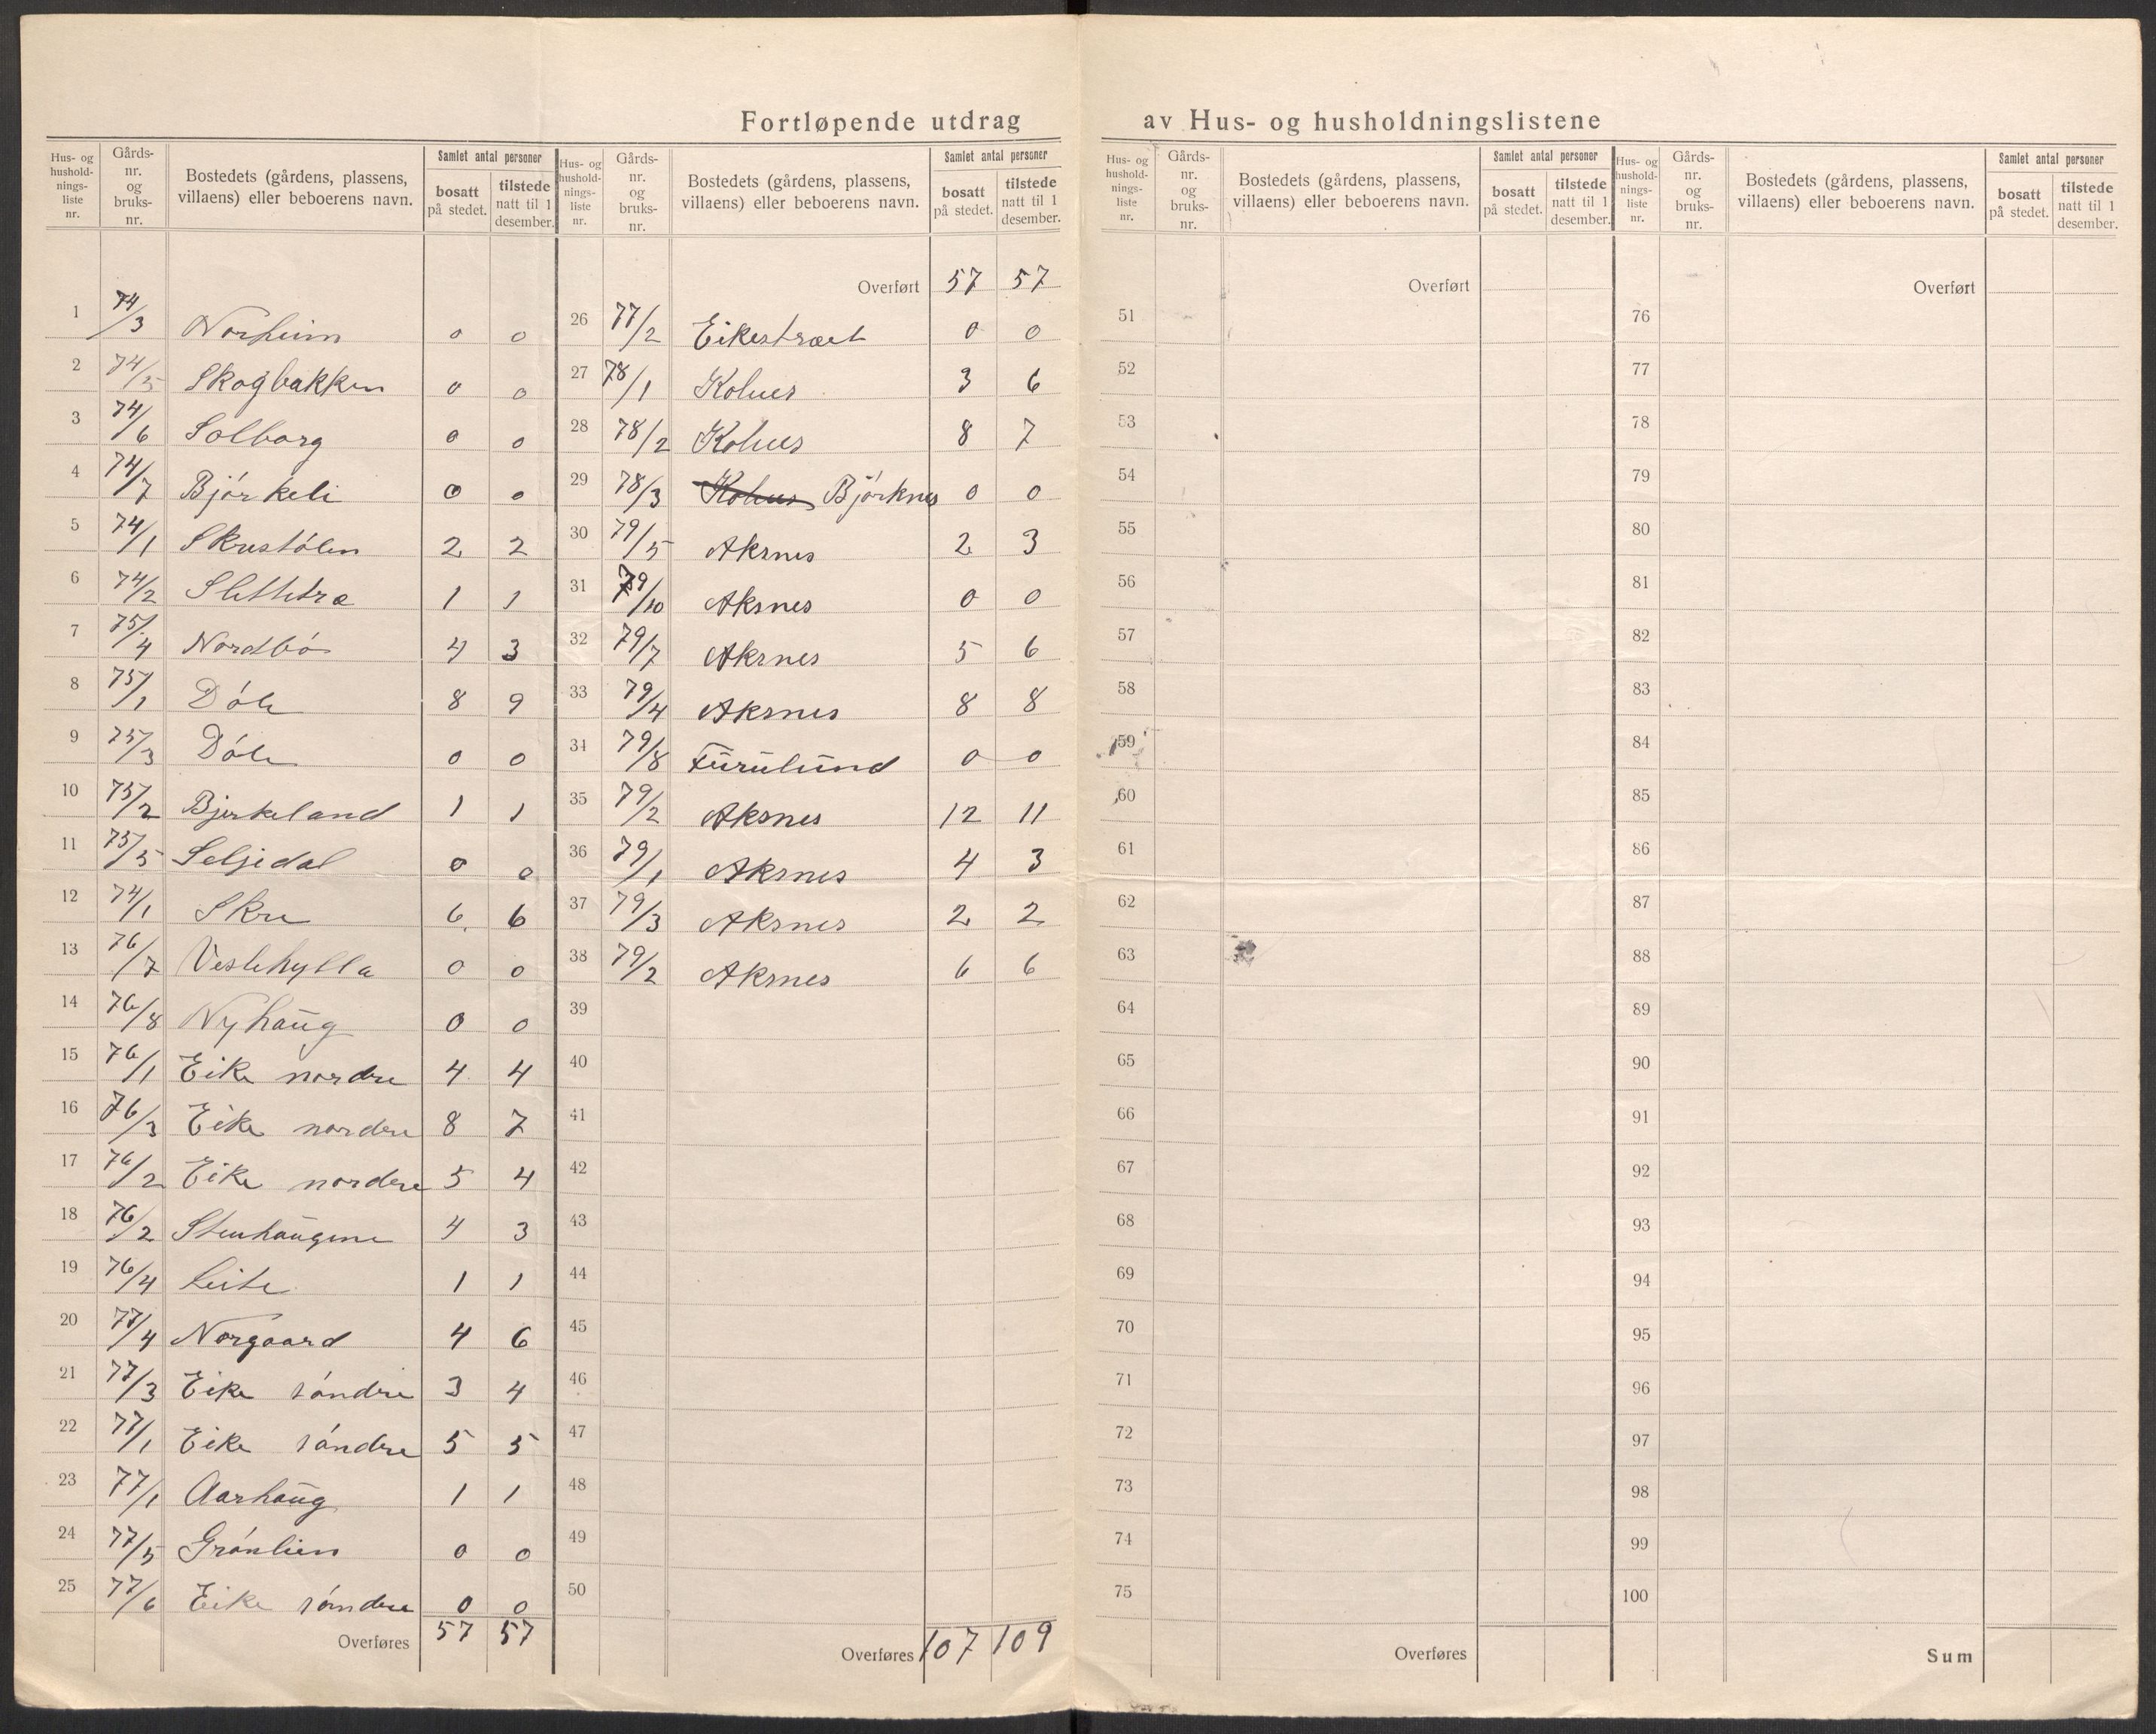 Fortløpende utdrag av Hus- og husholdningslistene
Hus- og husholdningsliste nr. | Gårds-nr. og bruks-nr. | Bostedets (gårdens, plassens, villaens) eller beboerens navn. | Samlet antal personer bosatt på stedet. | tilstede natt til 1 desember.
1 74/3 Norheim 0 0
2 74/5 Skogbakken 0 0
3 74/6 Solborg 0 0
4 74/7 Bjórkeli 0 0
5 74/1 Skrestólen 2 2
6 74/2 Slettetræ 1 1
7 75/4 Nordbó 4 3
8 75/1 Dóle 8 9
9 75/3 Dóle 0 0
10 75/2 Bjerkeland 1 1
11 75/5 Seljedal 0 0
12 74/1 Skre 6 6
13 76/7 Veslehylla 0 0
14 76/8 Nyhaug 0 0
15 76/1 Eike nordre 4 4
16 76/3 Eike nordre 8 7
17 76/2 Eike nordre 5 4
18 76/2 Stenhaugene 4 3
19 76/4 Leite 1 1
20 77/4 Norgaard 4 6
21 77/3 Eike sóndre 3 4
22 77/1 Eike sóndre 5 5
23 77/1 Aarhaug 1 1
24 77/5 Grónlien 0 0
25 77/6 Eike sóndre 0 0
Overføres 57 57
Hus- og husholdningsliste nr. | Gårds-nr. og bruks-nr. | Bostedets (gårdens, plassens, villaens) eller beboerens navn. | Samlet antal personer bosatt på stedet. | tilstede natt til 1 desember.
Overført 57 57
26 77/2 Eikestræet 0 0
27 78/1 Kolnes 3 6
28 78/2 Kolnes 8 7
29 78/3 Kolnes Bjórknes 0 0
30 79/5 Aksnes 2 3
31 79/10 Aksnes 0 0
32 79/7 Aksnes 5 6
33 79/4 Aksnes 8 8
34 79/8 Furulund 0 0
35 79/2 Aksnes 12 11
36 79/1 Aksnes 4 3
37 79/3 Aksnes 2 2
38 79/2 Aksnes 6 6
39
40
41
42
43
44
45
46
47
48
49
50
Overføres 107 109
Hus- og husholdningsliste nr. | Gårds-nr. og bruks-nr. | Bostedets (gårdens, plassens, villaens) eller beboerens navn. | Samlet antal personer bosatt på stedet. | tilstede natt til 1 desember.
Overført
51
52
53
54
55
56
57
58
59
60
61
62
63
64
65
66
67
68
69
70
71
72
73
74
75
Overføres
Hus- og husholdningsliste nr. | Gårds-nr. og bruks-nr. | Bostedets (gårdens, plassens, villaens) eller beboerens navn. | Samlet antal personer bosatt på stedet. | tilstede natt til 1 desember.
Overført
76
77
78
79
80
81
82
83
84
85
86
87
88
89
90
91
92
93
94
95
96
97
98
99
100
Sum